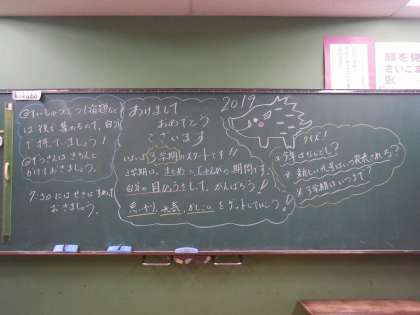 kokubo
◎ていしゅつぶつ(宿題など)
は後で集めるので、自分
で持っていましょう!
◎ずっさんは きちんと
かけておきましょう。
7:30にはせきにすわって
おきましょう。
あけまして
おめでとう
ございます
いよいよ3学期のスタートです!!
3学期は、まとめとじゅんびの期間です。
自分の目ひょうをもって、がんばろう!!
をゲットしていこう!
2019
クイズ!
①今年はなんどし?
※新しい元号はいつ発表される?
※3学期はいつまで?
顔を見
さいこま
別